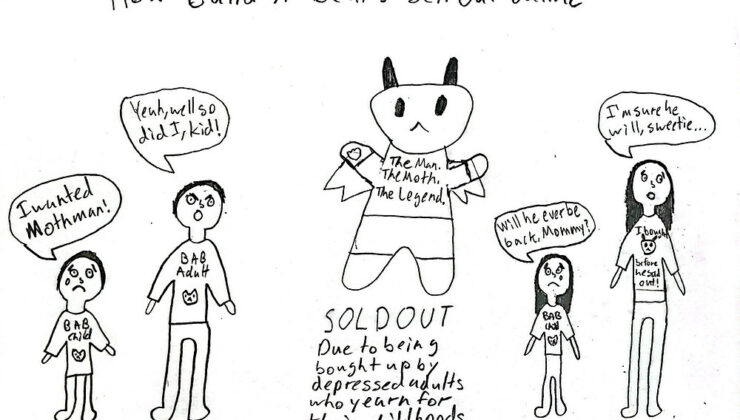 How Build A Bear's Sell Out Online
Yeah, well so
did I, kid!
I wanted
Mothman!
BAB
Child
BAB
Adult
The Man.
The Moth.
The Legend.
SOLD OUT
Due to being
bought up by
depressed adults
who yearn for
their childhoods
Will he ever be
back, Mommy?
I'm sure he
will, sweetie...
BAB
Child
I bought
before
he sold
out!